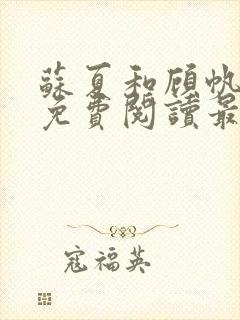 蘇夏和顾帆
免費閱讀最
寇福英